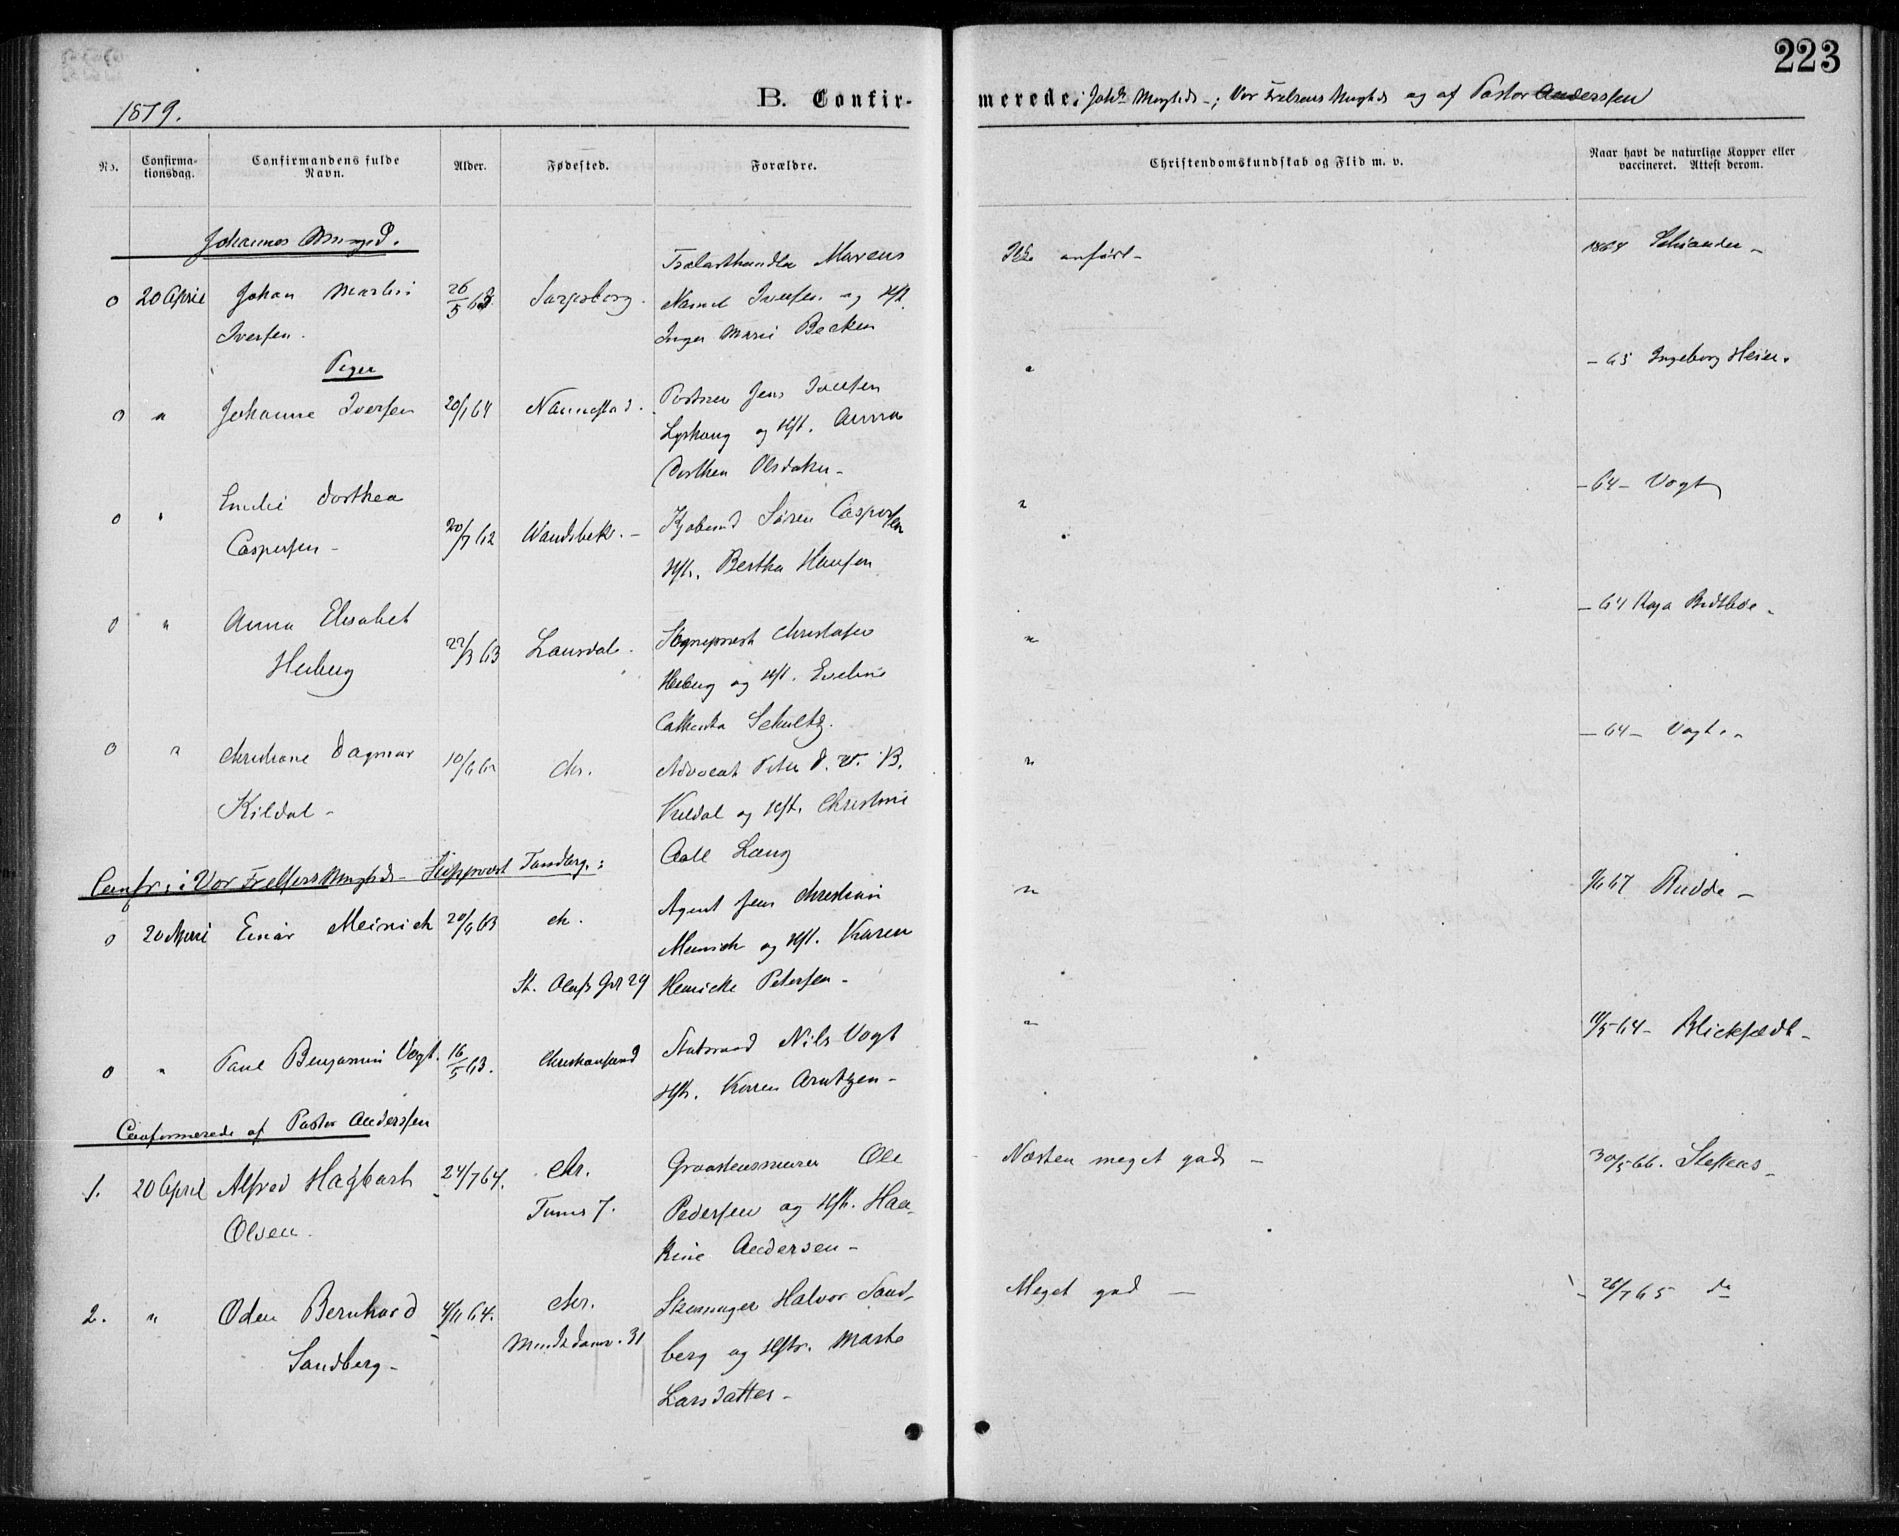 223
1879.
B. Confir-
merede i Johs Mnghds-; Vor Frelsers Mnghds og af Pastor Anderssen
No.
Confirma-
tionsdag.
Confirmandens fulde
Navn.
Alder.
Fødested.
Forældre.
Christendomskundskab og Flid m. v.
Naar havt de naturlige Kopper eller
vaccineret. Attest derom.
Johannes Mnghd.
0 20 April Johan Martin
Iversen.
26/5 63 Sarpsborg.
Marcus
Iversen og Hst.
Inger Marie Becken
Ikke anført-
1864
Piger
0 " Johanne Iversen 20/1 64 Nannestad.
Portner Jens Iversen
og Hst. Anna
Dorthea Olsdatter-
"
-65 Ingeborg Heier.
0 " Emilie Dorthea
Caspersen-
20/7 62 Wandsbek.-
Kjøbmd Søren Caspersen
Hst. Bertha Hansen
"
-64- Vogt
0 " Anna Elisabet
Heiberg
22/3 63
Sogneprest Christofer
Heiberg og Hst. Eveline
Cathinka Schultz.
"
-64 Kaja
0 " Christiane Dagmar
Kildal-
chr.
Advocat Peter D. W. B.
Kildal og Hst. Christine
Aall Lang
"
-64- Vogt.
Confr. i Vor Frelsers Mnghds- Stiftsprovst Tandberg:
0 20 April Einar Meinich 20/4 63 chr.
St. Olafs Gd 29
Agent Jens Christian
Meinich og Hst. Karen
Henricke Petersen-
"
67 Budde-
0 " Paul Benjamin Vogt. 16/5 63. Christiansand
Statsraad Nils Vogt
Hst. Karen Arntzen-
"
11/5 64- Blickfeldt-
Confirmerede af Pastor Anderssen
1. 20 April Alfred Hagbart
Olsen.
24/7 64. chr.
Tunes 7.
Graastensmurer Ole
Pedersen og Hst. Haa-
kine Andersen-
Næsten meget god-
30/5 66. Steffens-
2. " Oden Bernhard
Sandberg-
4/11 64. chr.
Munkedamv. 31
Skomager Halvor Sand-
berg og Hst. Marte
Larsdatter-
Meget god-
-26/7 65 do